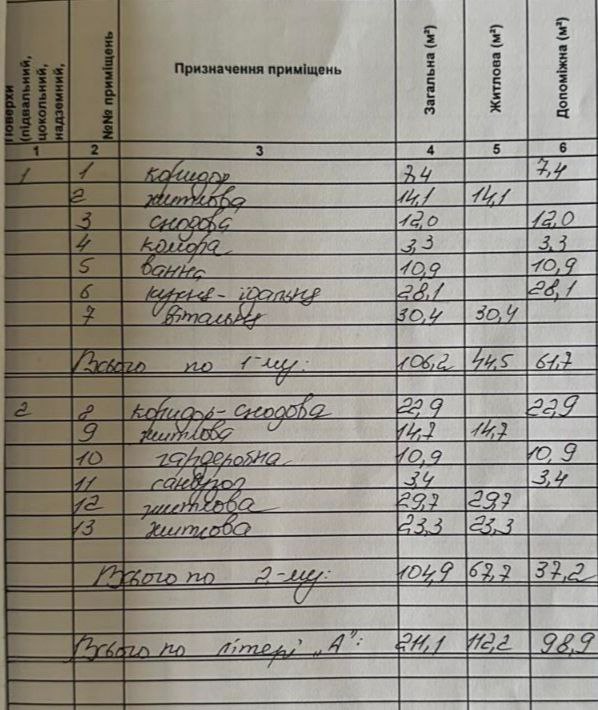 Поверхи (підвальний, цокольний, надземний, №№ приміщень Призначення приміщень Загальна (м²) Житлова (м²) Допоміжна (м²)
1 2 3 4 5 6
1 1 коридор 7,4 7,4
2 житлова 14,1 14,1
3 сходова 12,0 12,0
4 комора 3,3 3,3
5 ванна 10,9 10,9
6 кухня-їдальня 28,1 28,1
7 вітальня 30,4 30,4
Всього по 1-му: 106,2 44,5 61,7
2 8 коридор-сходова 22,9 22,9
9 житлова 14,7 14,7
10 гардеробна 10,9 10,9
11 санвузол 3,4 3,4
12 житлова 29,7 29,7
13 житлова 23,3 23,3
Всього по 2-му: 104,9 67,7 37,2
Всього по літері „А": 211,1 112,2 98,9